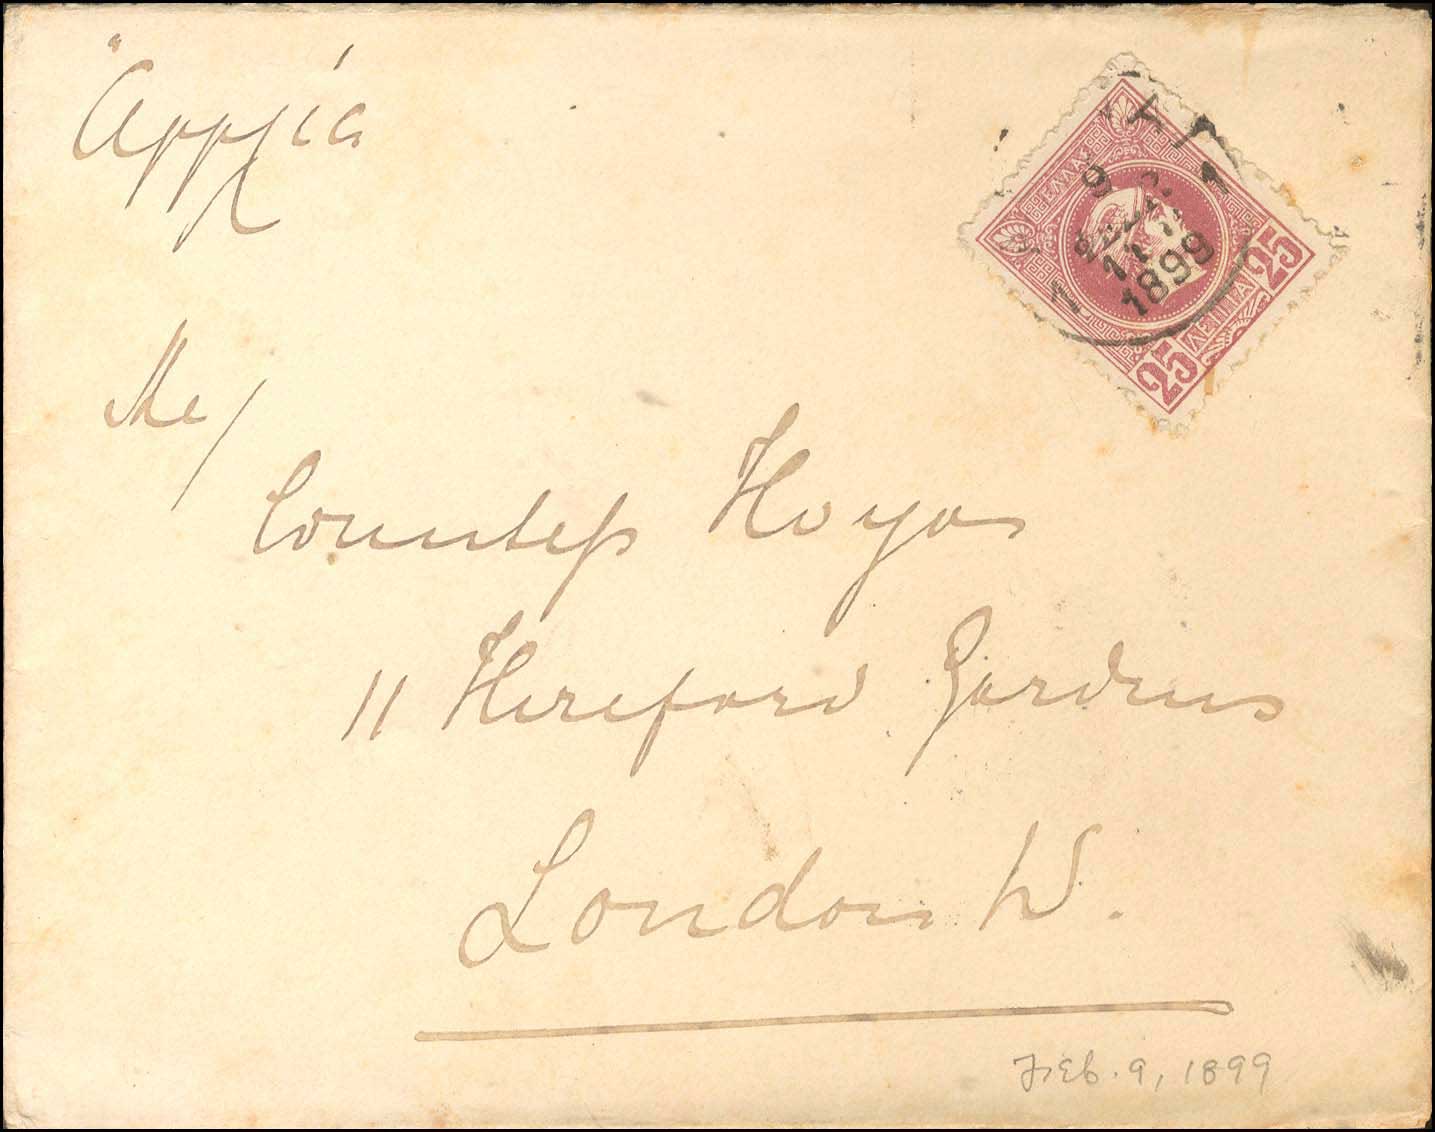 Αγγλία
The
Countess Hoyos
11 Hereford Gardens
London W.
Feb. 9, 1899
ΕΛΛΑΣ
25 ΛΕΠΤΑ 25
9
1899